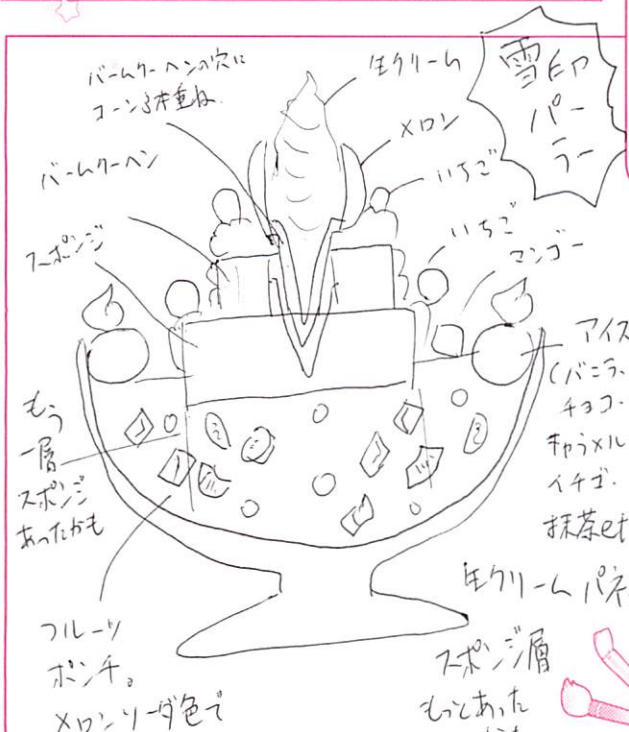 雪印
パーラー
バームクーヘンの穴に
コーン3本重ね.
生クリーム
メロン
バームクーヘン
いちご
スポンジ
いちご
マンゴー
アイス
(バニラ、
チョコ.
キャラメル
イチゴ.
抹茶et
もう
一層
スポンジ
あったかも
生クリーム パネ
フルーツ
ポンチ。
メロンソーダ色で
スポンジ層
もっとあった